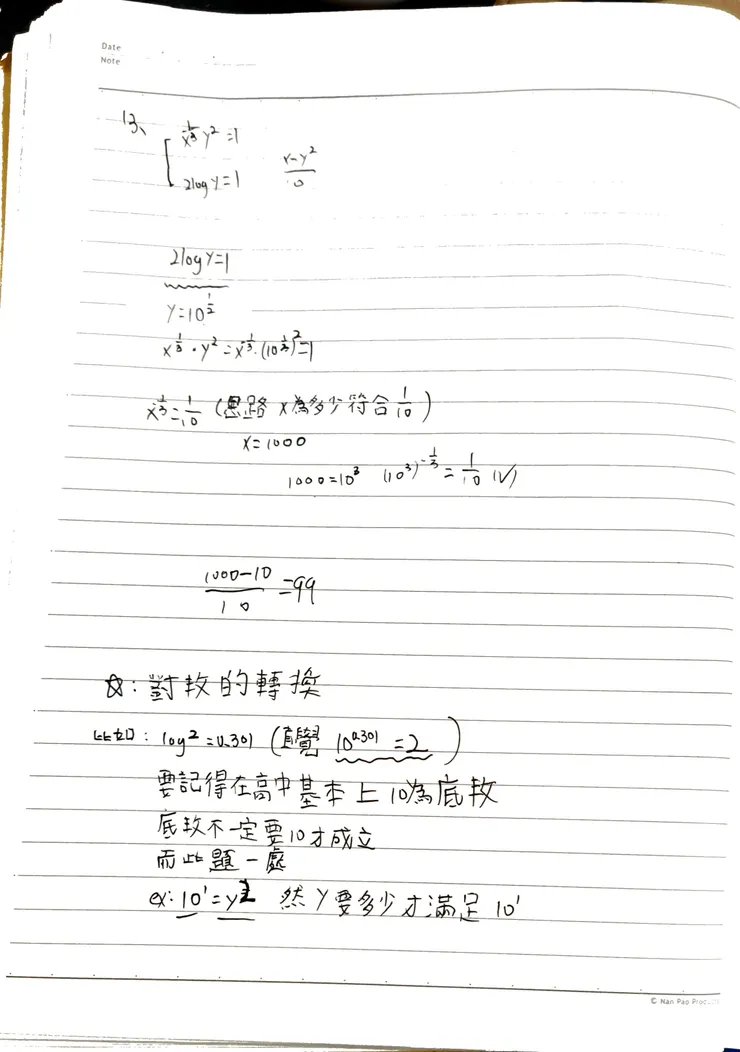 Date
Note
13、
x^{-1/3} y² = 1
2logy = 1
x-y²/10
2logy = 1
y = 10^{1/2}
x^{-1/3} · y² = x^{-1/3} · (10^{1/2})² = 1
x^{-1/3} = 1/10 (思路 x為多少符合 1/10)
x = 1000
1000 = 10³ (10³)^{-1/3} = 1/10 (√)
1000-10/10 = 99
☆: 對教的轉換
比如: log2 = 0.301 (直覺 10^{0.301} = 2)
要記得在高中基本上10為底敉
底敉不一定要10才成立
而此題一處
ex: 10¹ = y² 然 y要多少才滿足 10¹
© Nan Pao Product